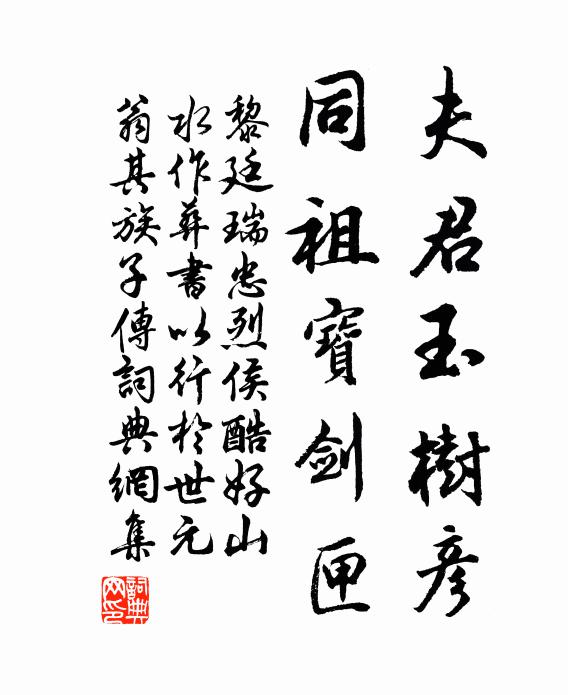 夫君玉樹彥
同祖寶劍匣
黎廷瑞忠烈侯酷好山
水作葬書以行於世元
翁其族子傳詞典網集
詞典網印